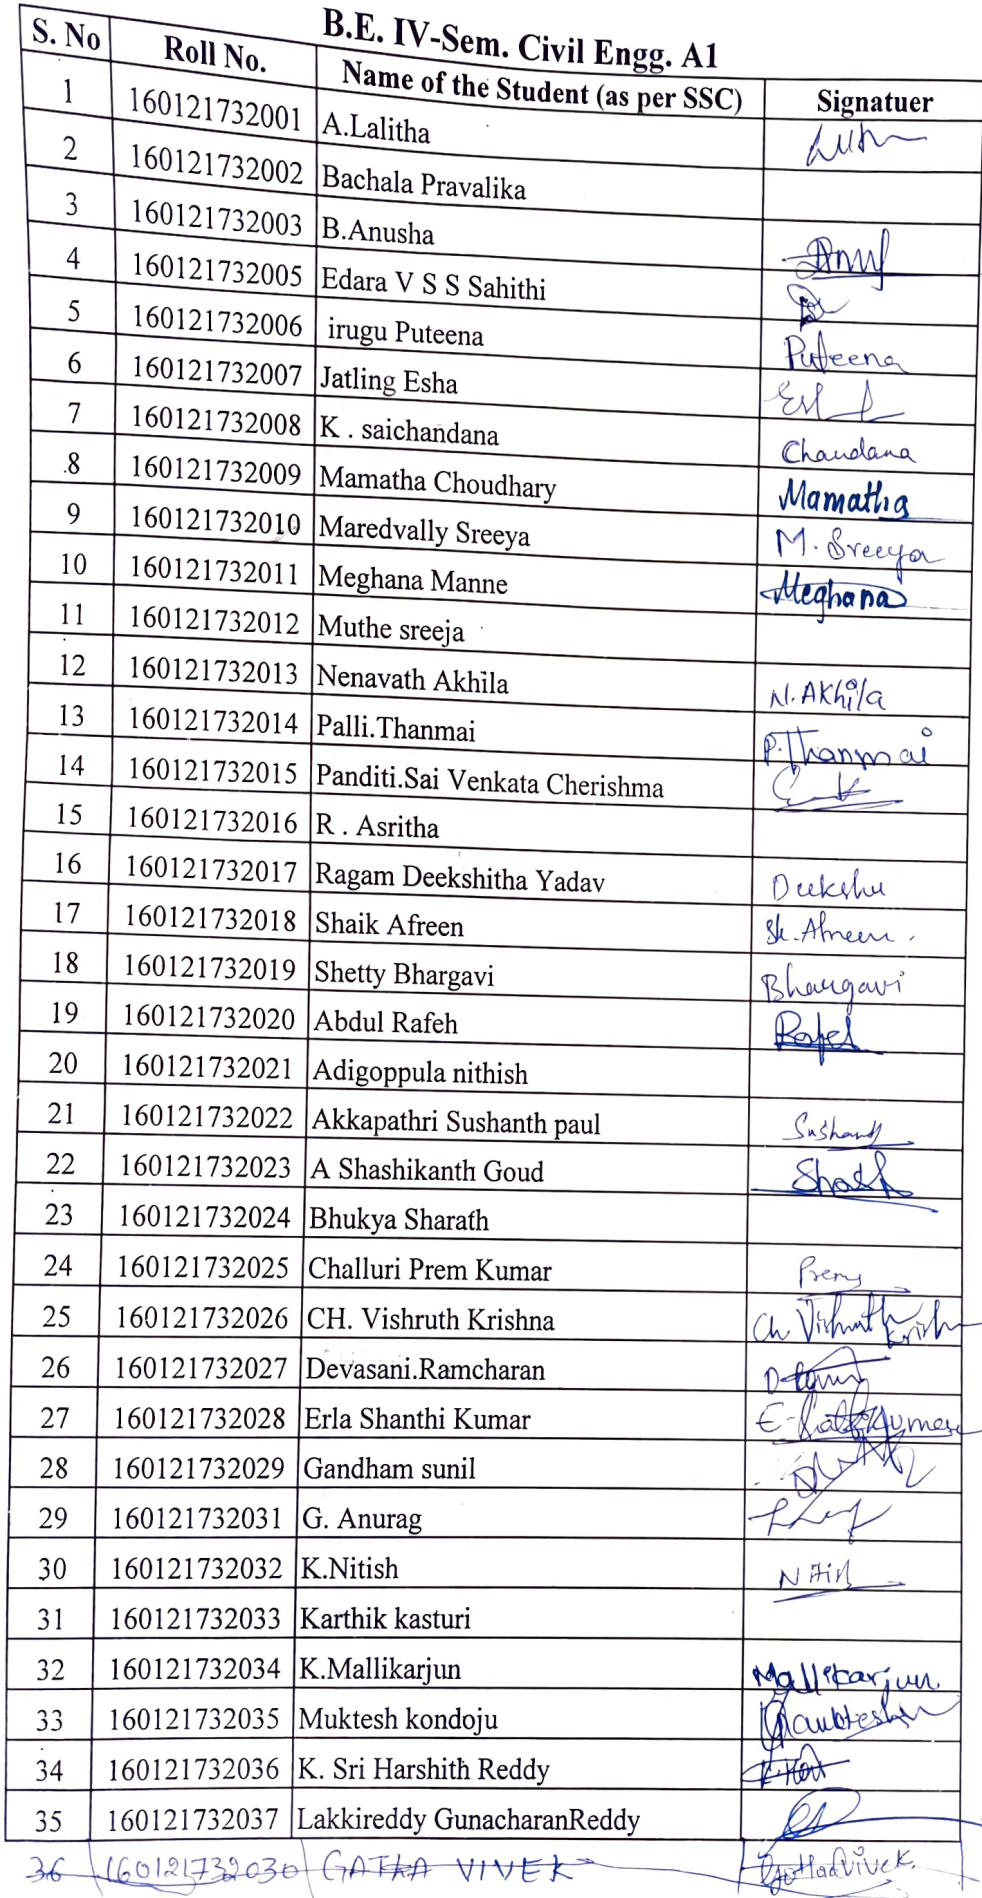 B.E. IV-Sem. Civil Engg. A1
S. No Roll No. Name of the Student (as per SSC) Signatuer
1 160121732001 A.Lalitha
2 160121732002 Bachala Pravalika
3 160121732003 B.Anusha
4 160121732005 Edara V S S Sahithi
5 160121732006 irugu Puteena Puteena
6 160121732007 Jatling Esha
7 160121732008 K . saichandana Chandana
8 160121732009 Mamatha Choudhary Mamatha
9 160121732010 Maredvally Sreeya M. Sreeya
10 160121732011 Meghana Manne Meghana
11 160121732012 Muthe sreeja
12 160121732013 Nenavath Akhila N. Akhila
13 160121732014 Palli.Thanmai P. Thanmai
14 160121732015 Panditi.Sai Venkata Cherishma
15 160121732016 R . Asritha
16 160121732017 Ragam Deekshitha Yadav
17 160121732018 Shaik Afreen Sk. Afreen
18 160121732019 Shetty Bhargavi Bhargavi
19 160121732020 Abdul Rafeh
20 160121732021 Adigoppula nithish
21 160121732022 Akkapathri Sushanth paul
22 160121732023 A Shashikanth Goud
23 160121732024 Bhukya Sharath
24 160121732025 Challuri Prem Kumar
25 160121732026 CH. Vishruth Krishna
26 160121732027 Devasani.Ramcharan
27 160121732028 Erla Shanthi Kumar
28 160121732029 Gandham sunil
29 160121732031 G. Anurag
30 160121732032 K.Nitish
31 160121732033 Karthik kasturi
32 160121732034 K.Mallikarjun Mallikarjun
33 160121732035 Muktesh kondoju
34 160121732036 K. Sri Harshith Reddy
35 160121732037 Lakkireddy GunacharanReddy
36 160121732030 GATHA VIVEK